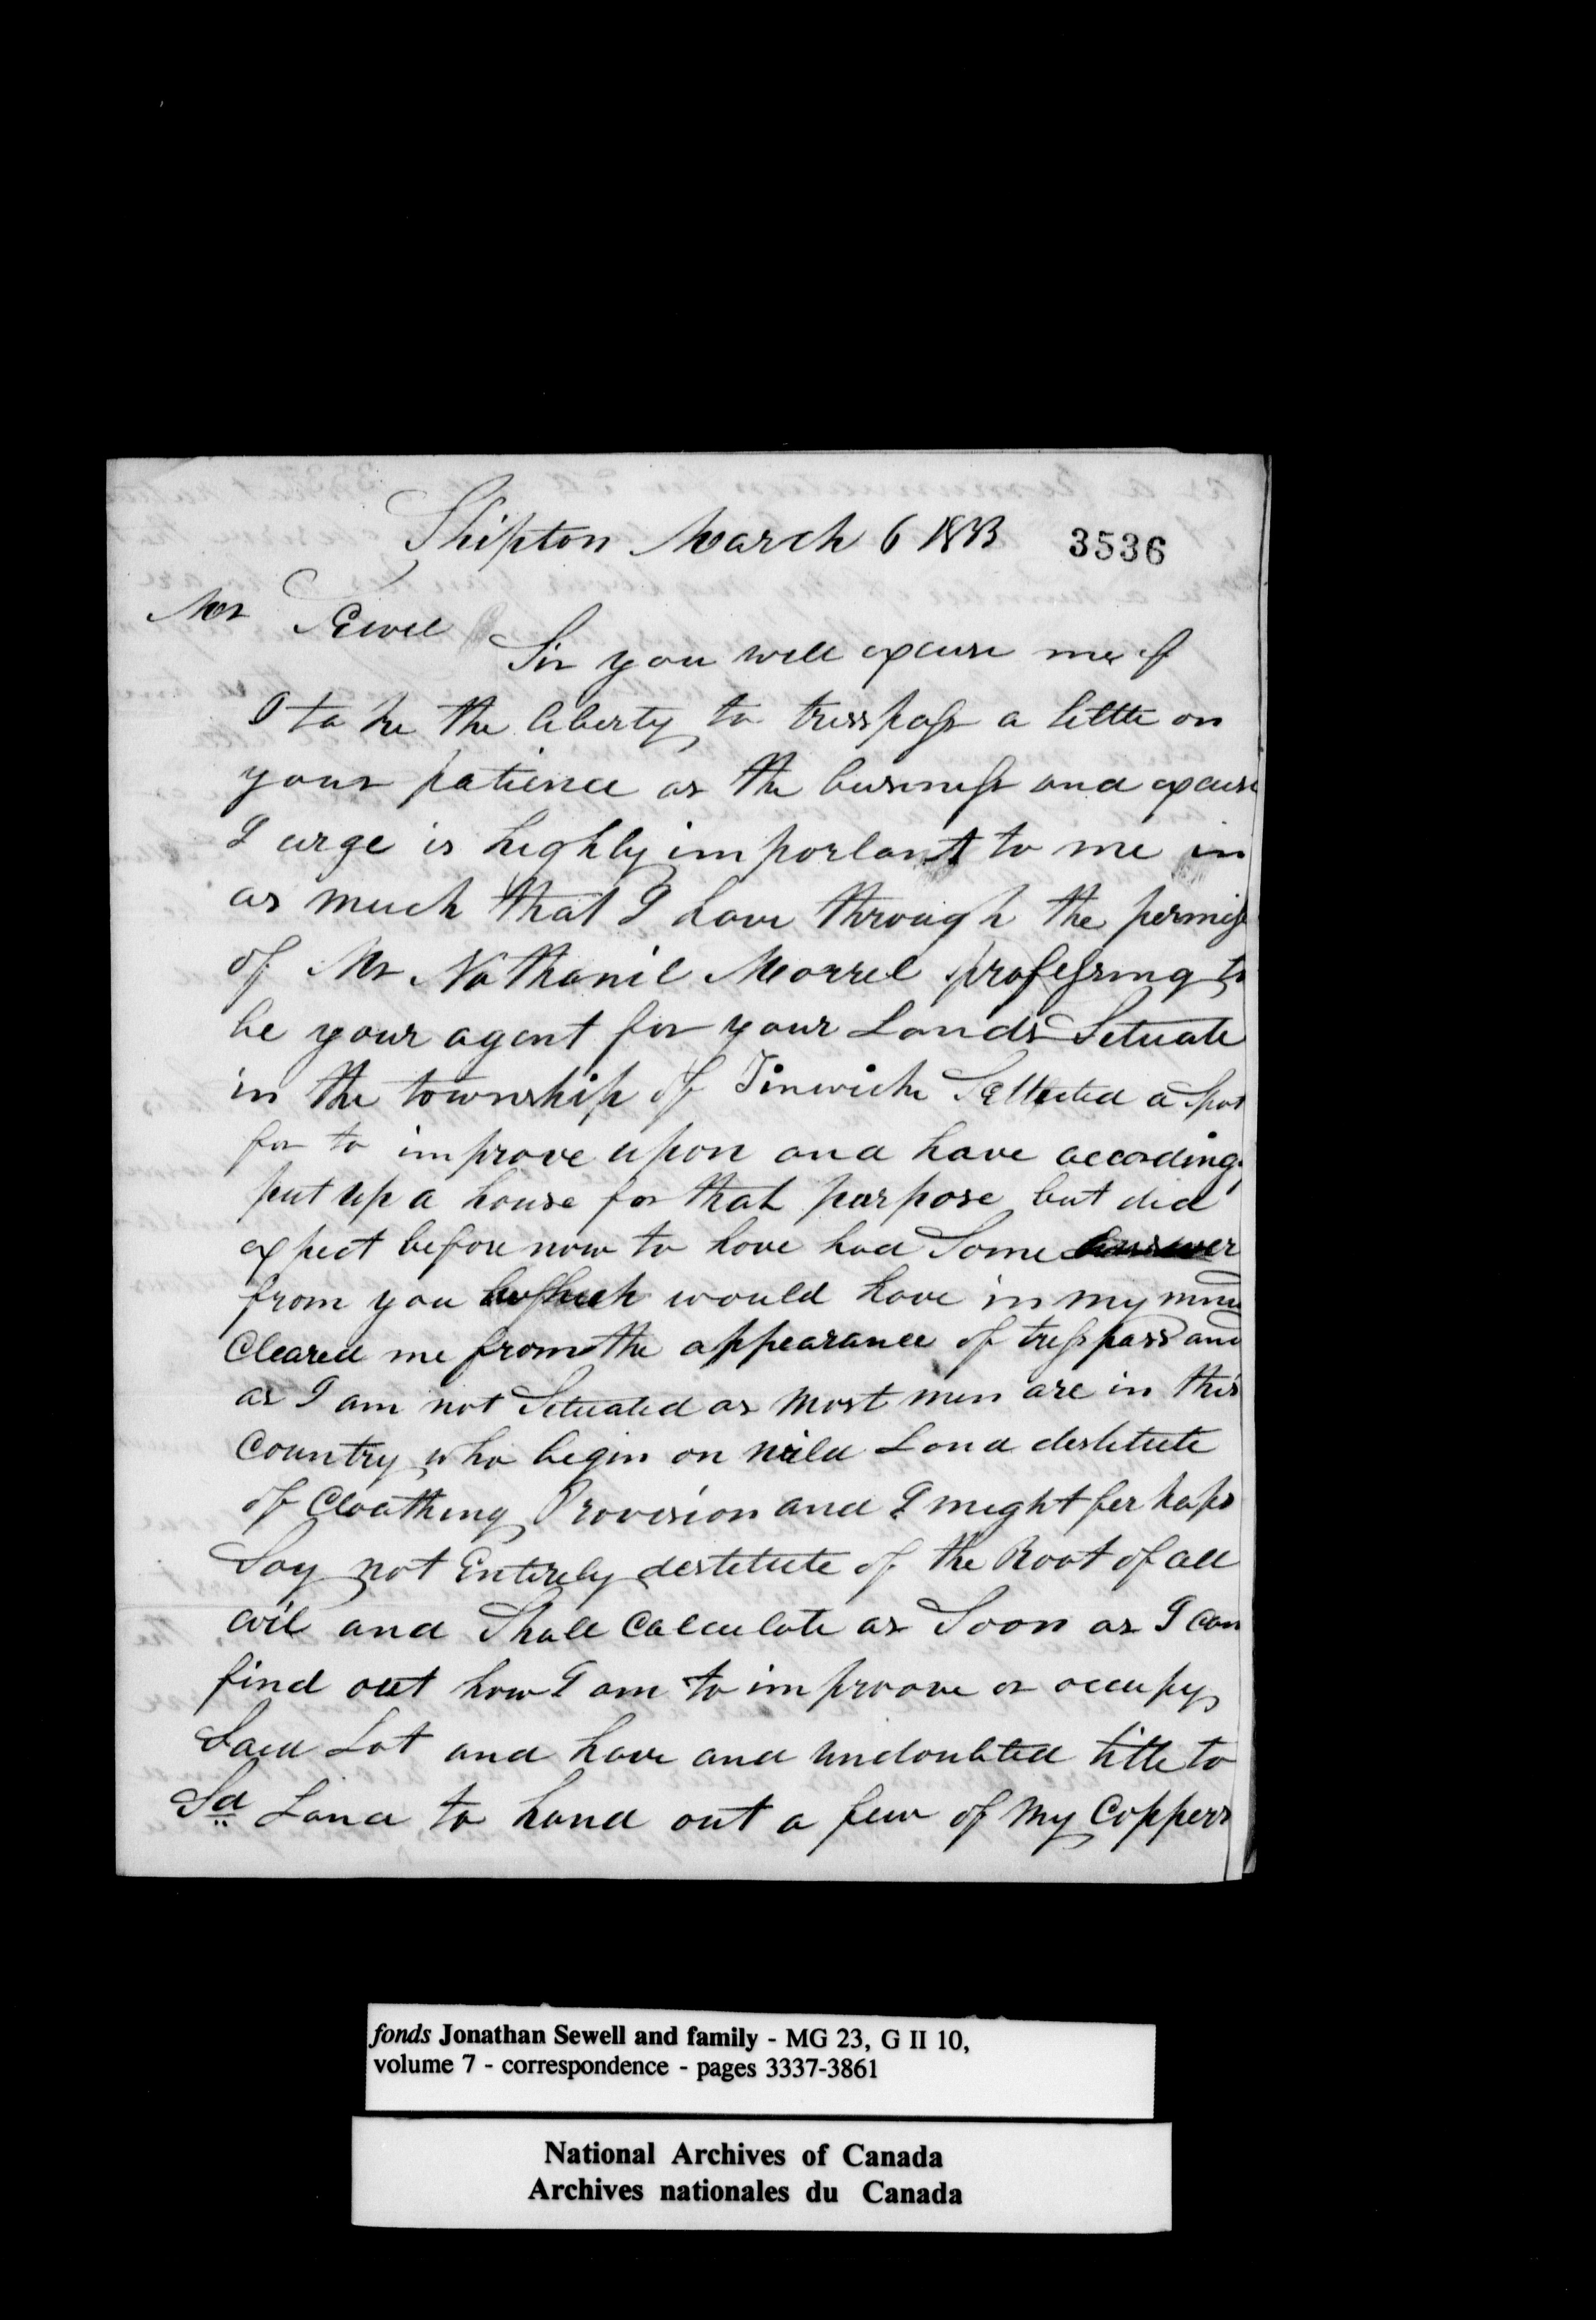 Shipton March 6 1833 3536
Mr Sewel
Sir you will excuse me if
I take the liberty to tresspass a little on
your patience as the business and excuse
I urge is highly important to me in
as much that I have through the permiss
of Mr Nathanil Morrel professing to
be your agent for your Lands Situate
in the township of Tinwick Sellected a Spot
for to improve upon and have according
put up a house for that purpose but did
expect before now to have had Some answer
from you which would have in my mind
Cleared me from the appearance of tresspass and
as I am not Situated as most men are in this
Country who begin on wild Land destitute
of Cloathing Provision and I might perhaps
Say not Entirely destitute of the Root of all
evil and Shall Calculate as Soon as I can
find out how I am to improove or occupy
Said Lot and have and undoubted title to
Sd Land to hand out a few of my Coppers
fonds Jonathan Sewell and family - MG 23, G II 10,
volume 7 - correspondence - pages 3337-3861
National Archives of Canada
Archives nationales du Canada